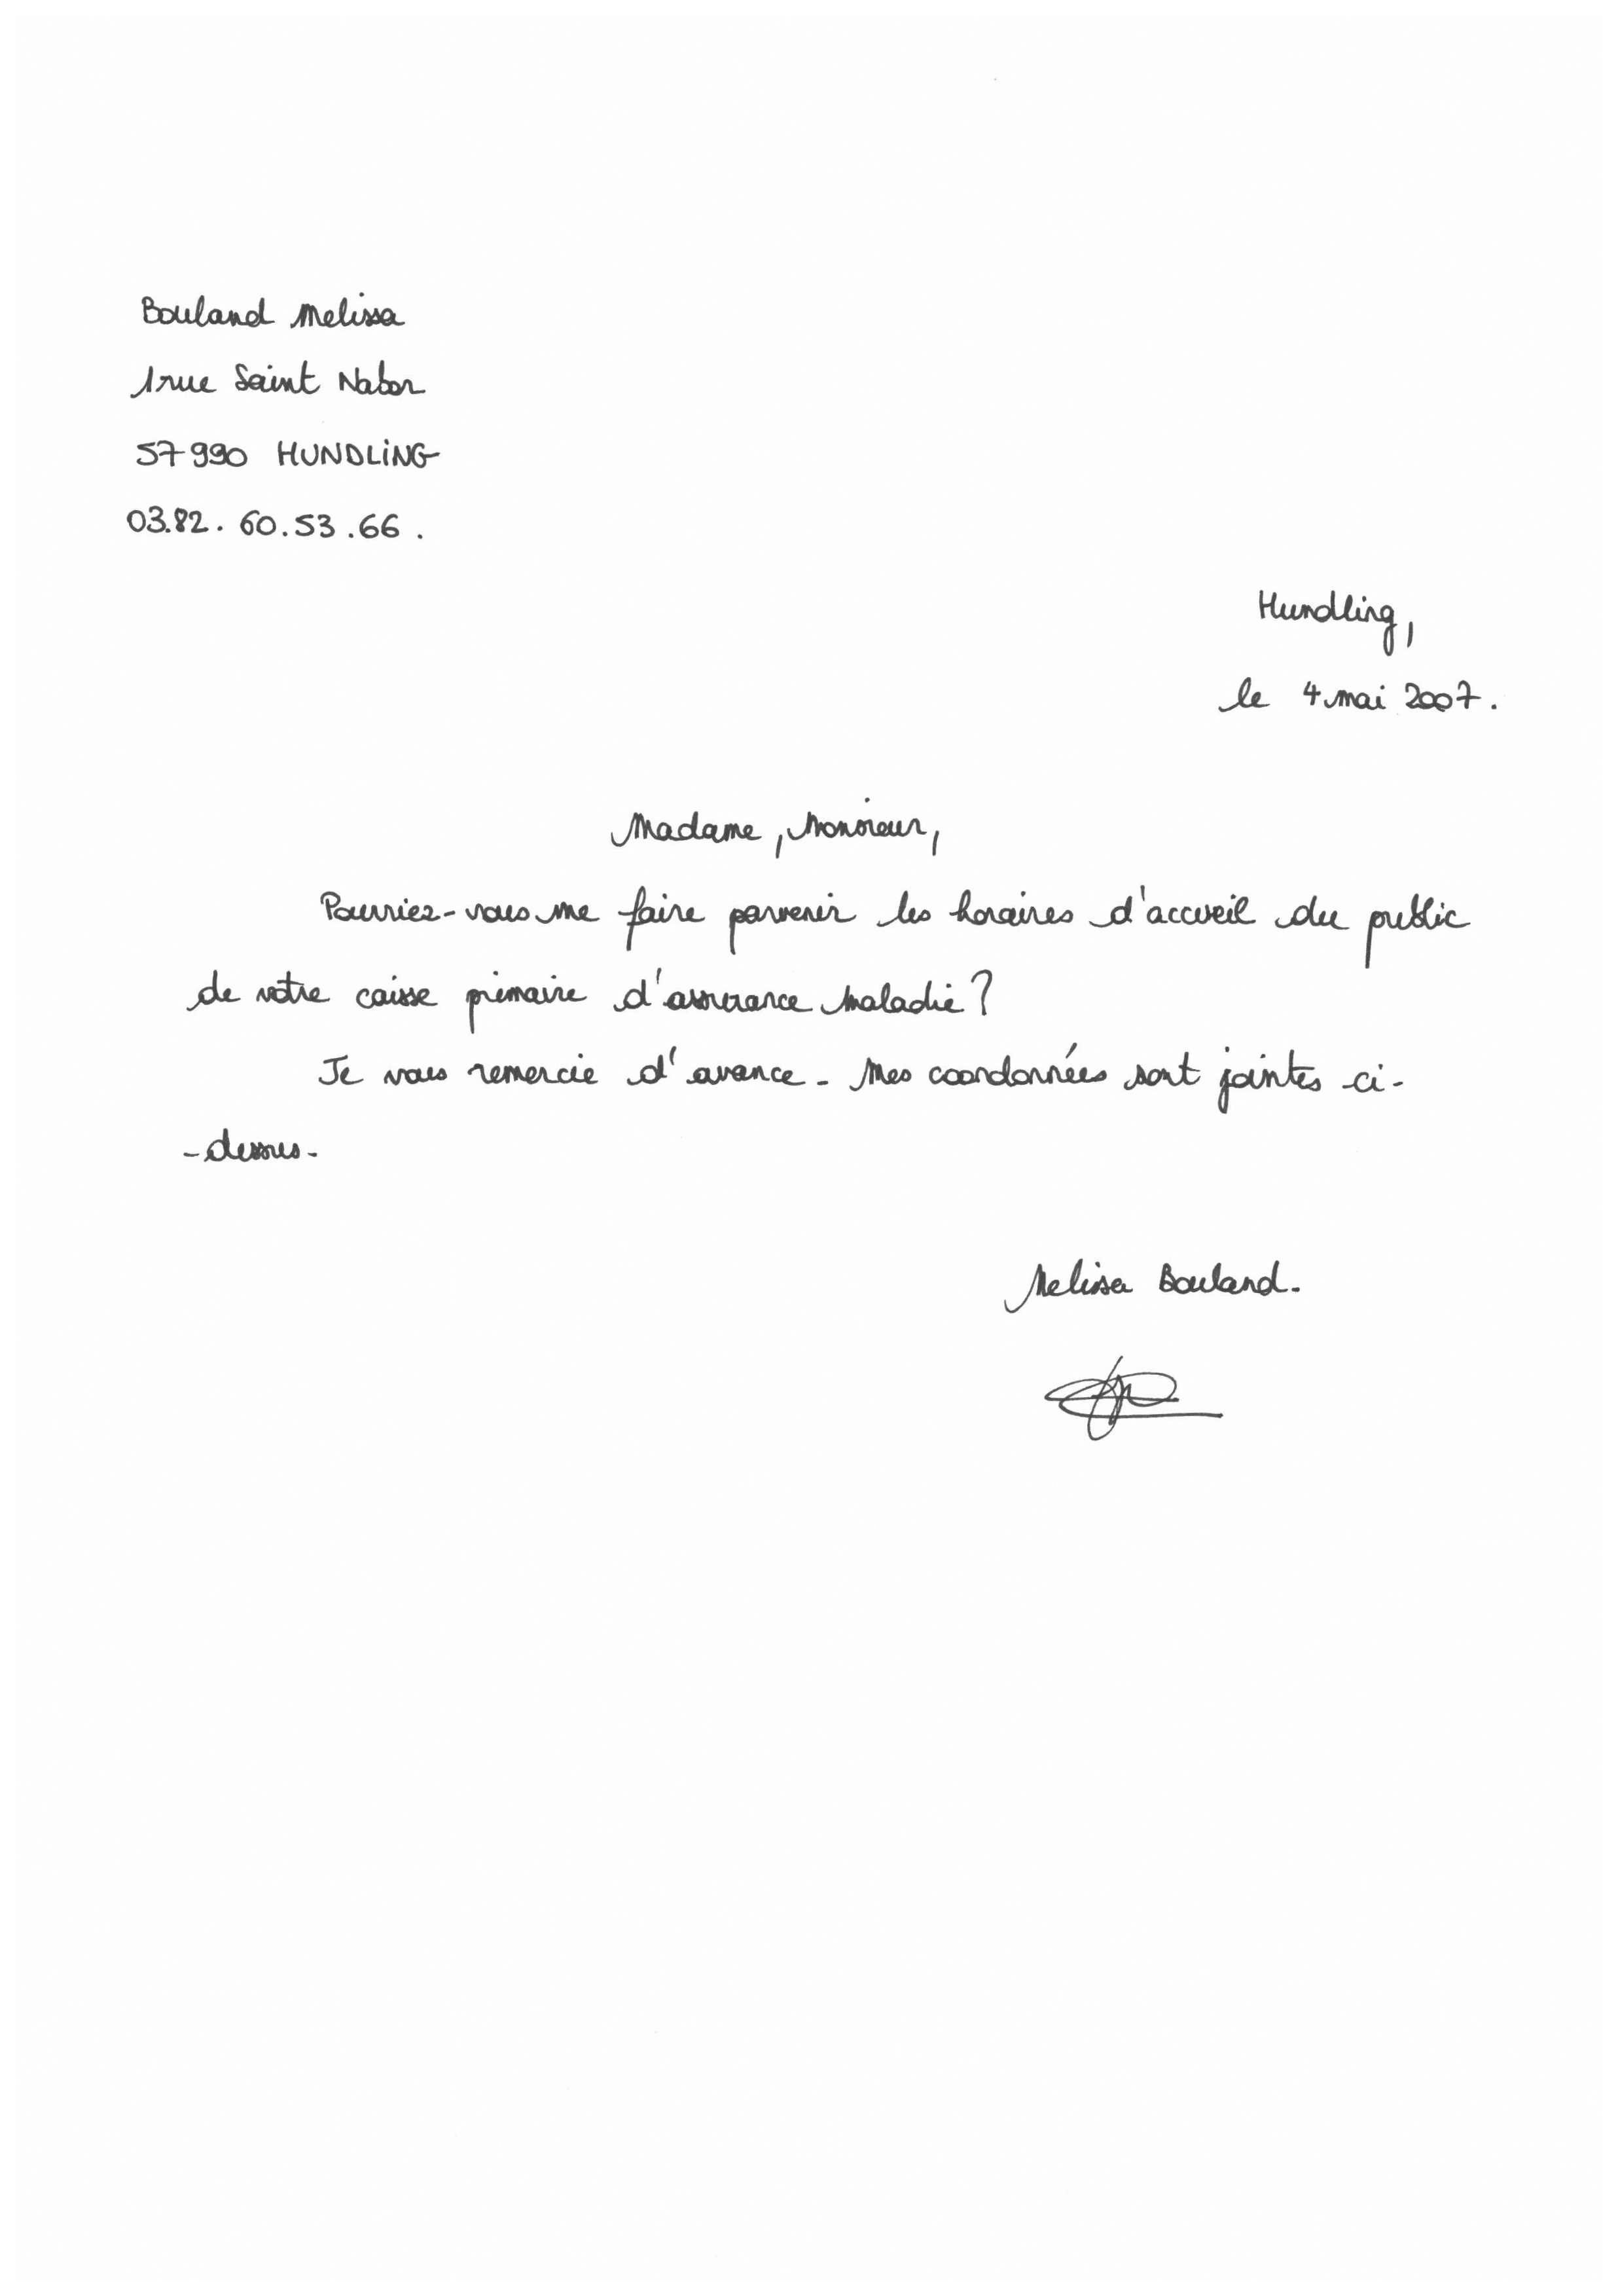 Bouland Melissa
1 rue Saint Nabor
57990 HUNDLING
03.82.60.53.66.
Hundling,
le 4 mai 2007.
Madame, Monsieur,
Pourriez-vous me faire parvenir les horaires d'accueil du public
de votre caisse primaire d'assurance maladie?
Je vous remercie d'avance. Mes coordonnées sont jointes ci-
-dessus.
Melissa Bouland.